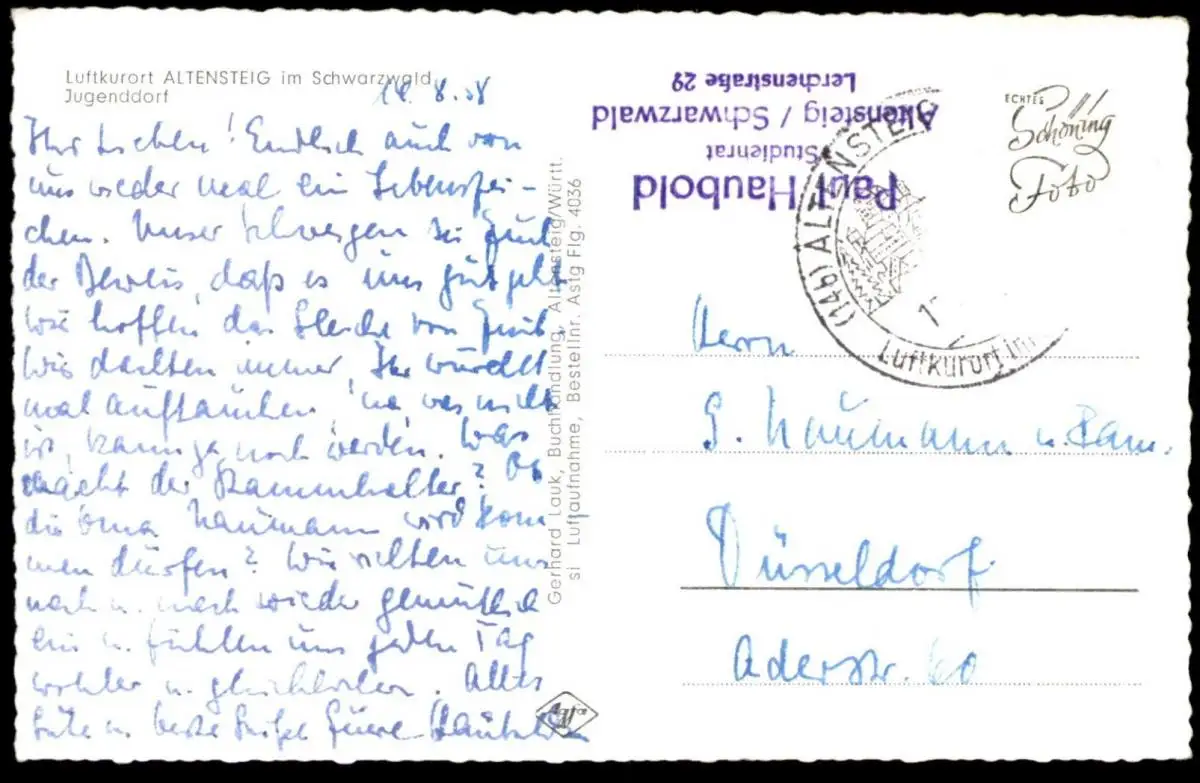 Luftkurort ALTENSTEIG im Schwarzwald
Jugenddorf
14. 8. 58
Ihr Lieben! Endlich auch von
uns wieder mal ein Lebenszei-
chen. Unser Schweigen sei Euch
der Beweis, daß es uns gut geht
wir hoffen das Gleiche von Euch.
Wir dachten immer, Ihr würdet
mal auftauchen, na, was nicht
ist, kann ja noch werden. Was
macht der Stammhalter? Ob
die Oma Naumann wird kom
men dürfen? Wir richten uns
nach u. nach wieder gemütlich
ein u. fühlen uns jeden Tag
wohler u. glücklicher. Alles
Gute u. beste Grüße Euere Haubolds
Gerhard Lauk, Buchhandlung, Altensteig/Württ.
si Luftaufnahme, Bestellnr. Astg Flg. 4036
Agfa
Paul Haubold
Studienrat
Altensteig / Schwarzwald
Lerchenstraße 29
(14b) ALTENSTEIG
Luftkurort im
ECHTES
Schöning
Foto
Herrn
G. Naumann u. Fam.
Düsseldorf
Aderstr. 60